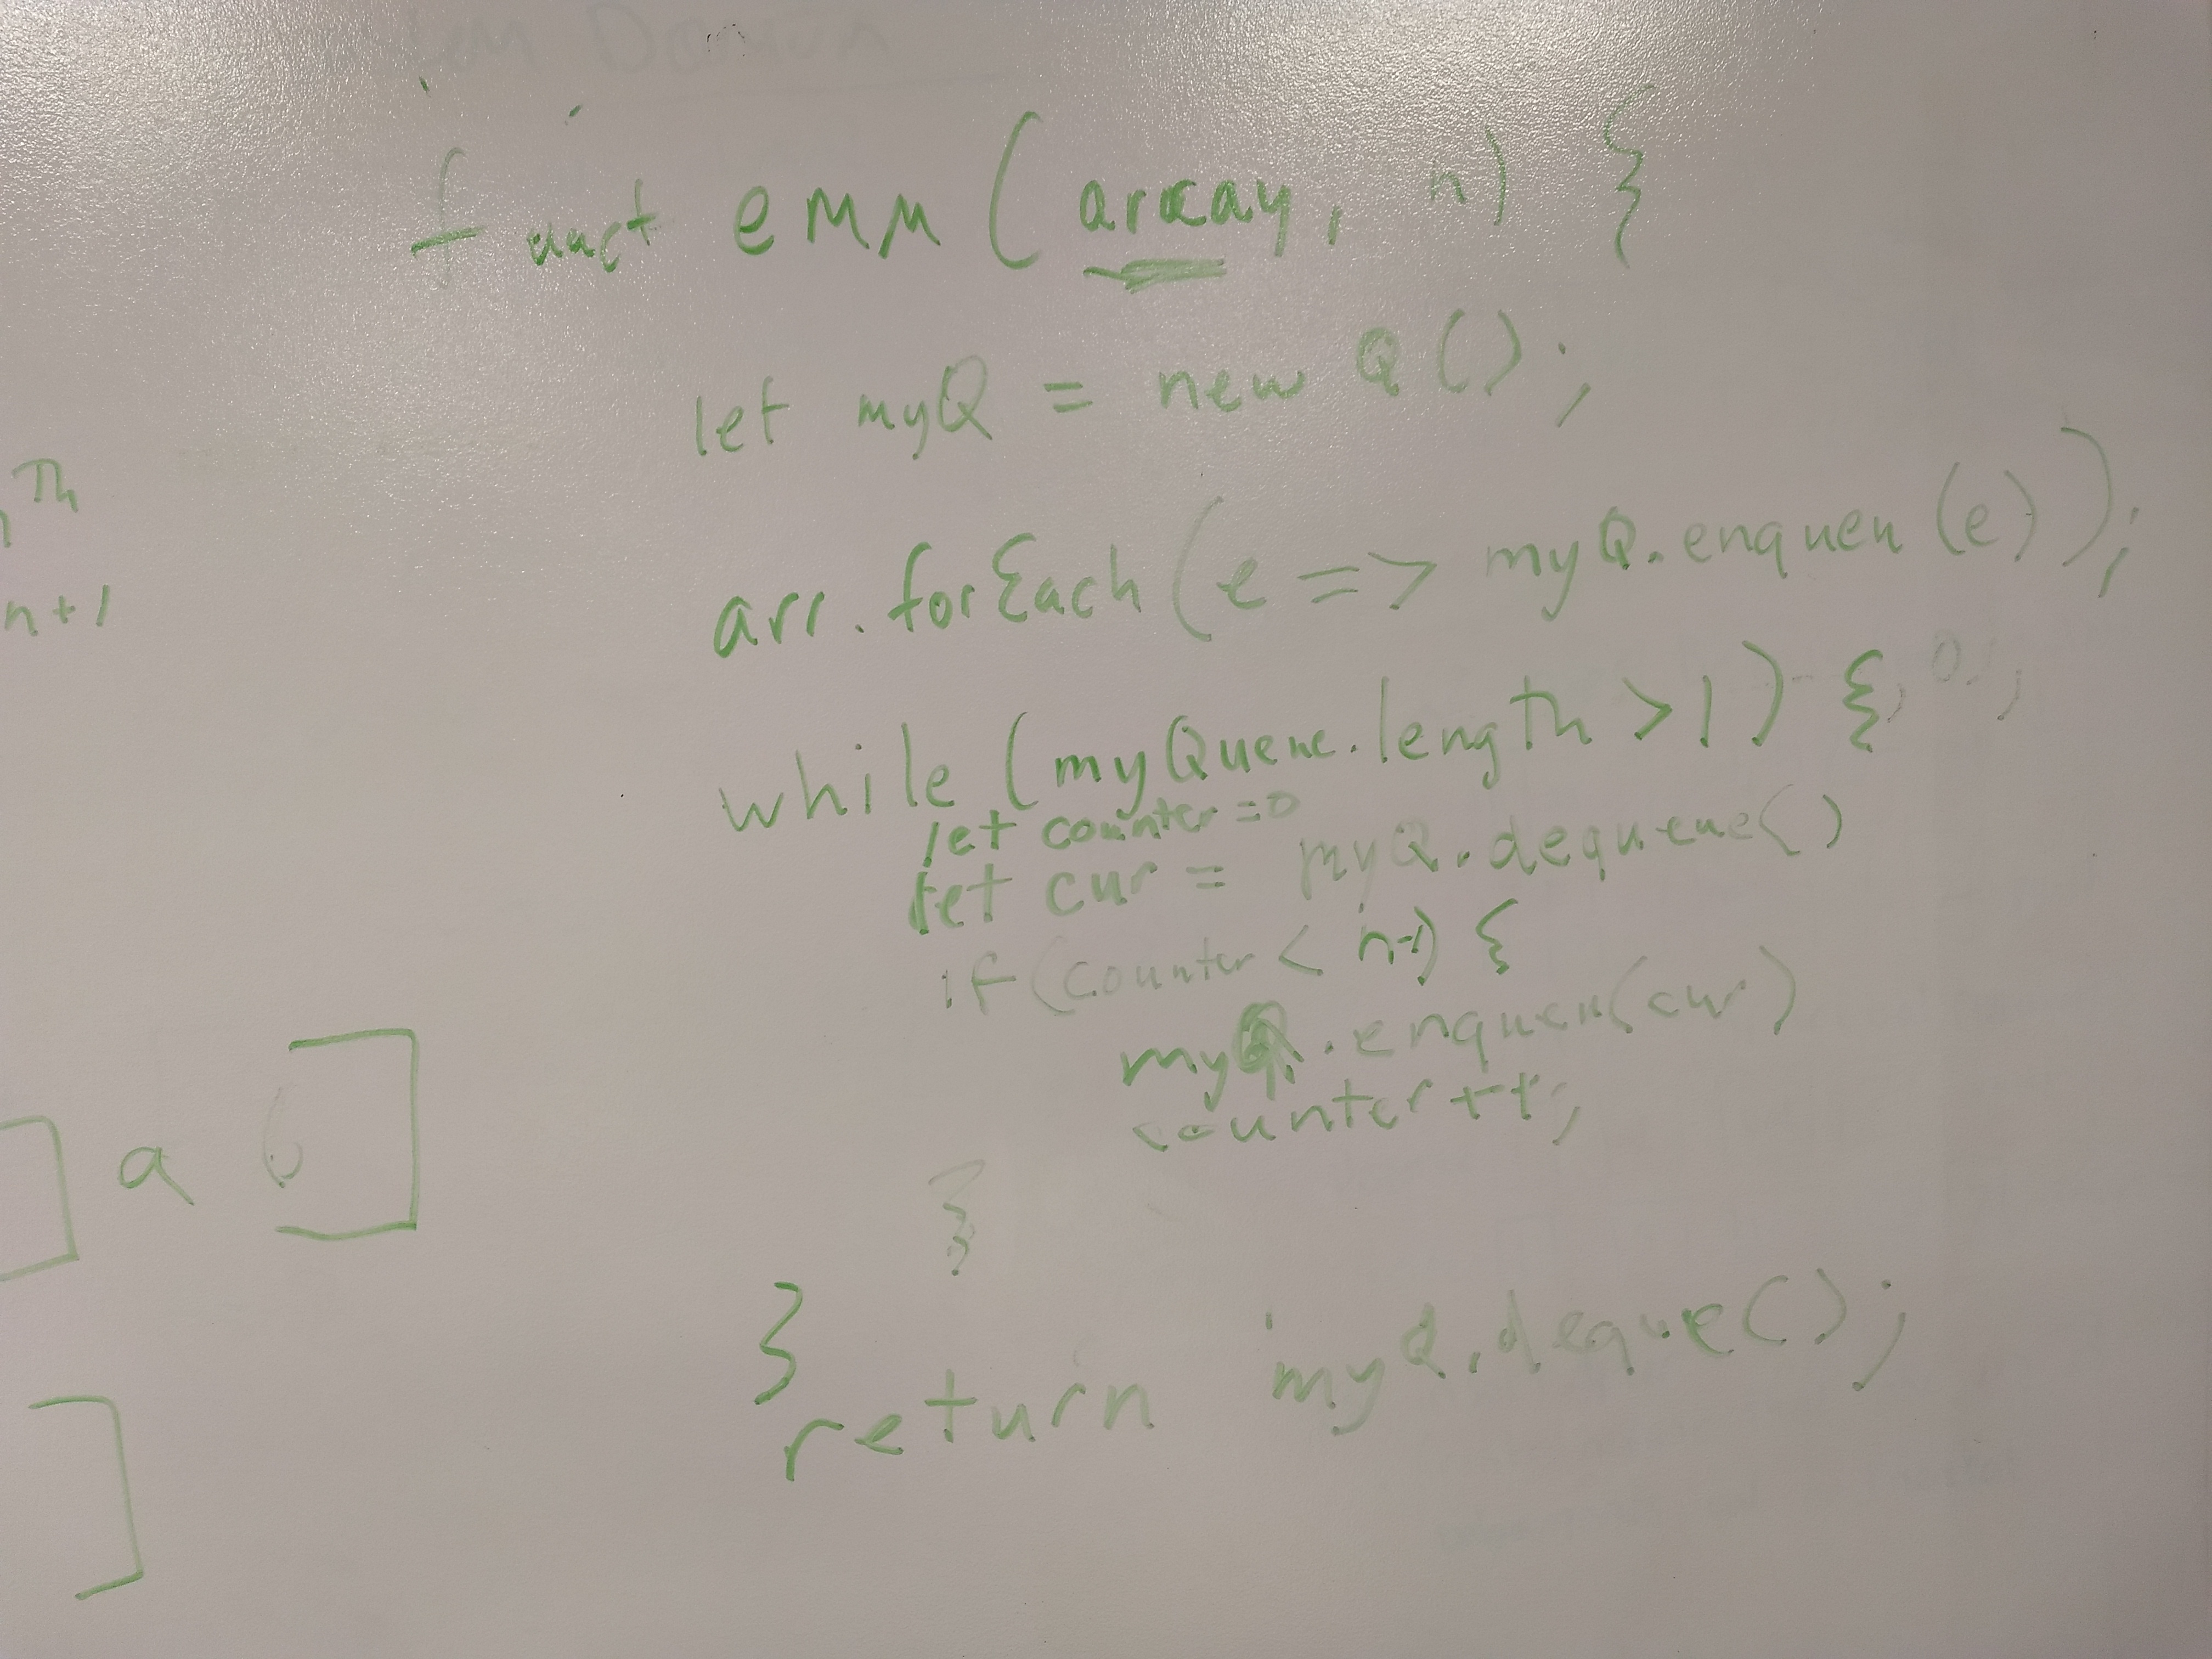 Domain
funct emm (array, n) {
let myQ = new Q();
Th
n+1
arr.forEach(e => myQ.enqueu(e));
while (myQueue.length > 1) {
let counter = 0
let cur = myQ.dequeue()
if (counter < n-1) {
myQ.enqueu(cur)
counter++;
a
}
}
return myQ.deque();